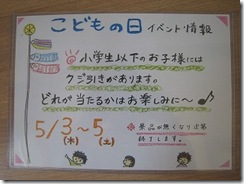 こどもの日 イベント情報
小学生以下のお子様には
クジ引きがあります。
どれが当たるかはお楽しみに～♪
5/3～5
(木) (土)
※景品が無くなり次第
終了します。